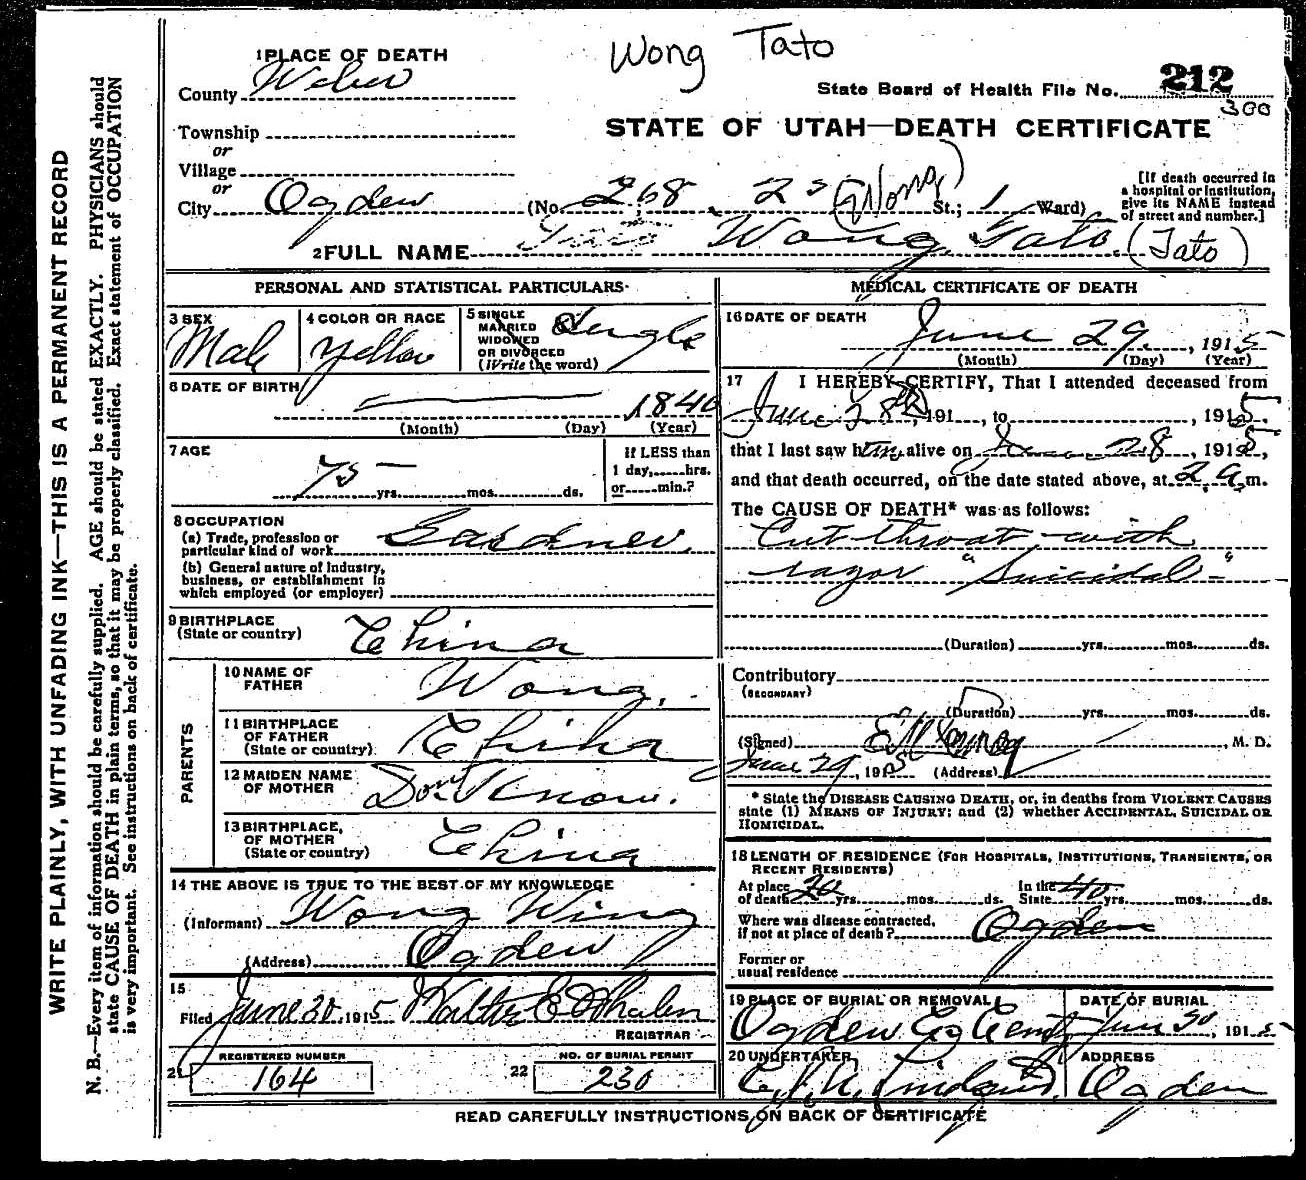 Wong Tato
1 PLACE OF DEATH
County Weber
State Board of Health File No. 212
300
Township
or
Village
or
City Ogden
STATE OF UTAH—DEATH CERTIFICATE
(No. 268, 25 St.; 1 Ward)
(Wong)
[If death occurred in
a hospital or institution,
give its NAME instead
of street and number.]
2 FULL NAME Wong Tato (Tato)
PERSONAL AND STATISTICAL PARTICULARS
3 SEX
Male
4 COLOR OR RACE
Yellow
5 SINGLE
MARRIED
WIDOWED
OR DIVORCED
(Write the word)
Single
6 DATE OF BIRTH
1840
(Month) (Day) (Year)
7 AGE
75 yrs. mos. ds.
If LESS than
1 day, hrs.
or min.?
8 OCCUPATION
(a) Trade, profession or
particular kind of work Gardner
(b) General nature of industry,
business, or establishment in
which employed (or employer)
9 BIRTHPLACE
(State or country) China
PARENTS
10 NAME OF
FATHER Wong
11 BIRTHPLACE
OF FATHER
(State or country) China
12 MAIDEN NAME
OF MOTHER Dont Know.
13 BIRTHPLACE,
OF MOTHER
(State or country) China
14 THE ABOVE IS TRUE TO THE BEST OF MY KNOWLEDGE
(Informant) Wong Wing
(Address) Ogden
15
Filed June 30, 1915 Walter E Whalen
REGISTRAR
21 REGISTERED NUMBER
164
22 NO. OF BURIAL PERMIT
230
MEDICAL CERTIFICATE OF DEATH
16 DATE OF DEATH
June 29, 1915
(Month) (Day) (Year)
17 I HEREBY CERTIFY, That I attended deceased from
June 28th, 191 , to , 1915
that I last saw him alive on June 28, 1915,
and that death occurred, on the date stated above, at 2 a m.
The CAUSE OF DEATH* was as follows:
Cut throat with
razor "Suicidal"
(Duration) yrs. mos. ds.
Contributory
(SECONDARY)
(Duration) yrs. mos. ds.
(Signed) , M. D.
June 29, 1915 (Address)
* State the DISEASE CAUSING DEATH, or, in deaths from VIOLENT CAUSES
state (1) MEANS OF INJURY; and (2) whether ACCIDENTAL, SUICIDAL OR
HOMICIDAL.
18 LENGTH OF RESIDENCE (FOR HOSPITALS, INSTITUTIONS, TRANSIENTS, OR
RECENT RESIDENTS)
At place
of death 20 yrs. mos. ds.
In the
State 40 yrs. mos. ds.
Where was disease contracted,
if not at place of death? Ogden
Former or
usual residence
19 PLACE OF BURIAL OR REMOVAL
Ogden Cemt
DATE OF BURIAL
June 30, 1915
20 UNDERTAKER
ADDRESS
Ogden
READ CAREFULLY INSTRUCTIONS ON BACK OF CERTIFICATE
WRITE PLAINLY, WITH UNFADING INK—THIS IS A PERMANENT RECORD
N. B.—Every item of information should be carefully supplied. AGE should be stated EXACTLY. PHYSICIANS should
state CAUSE OF DEATH in plain terms, so that it may be properly classified. Exact statement of OCCUPATION
is very important. See instructions on back of certificate.